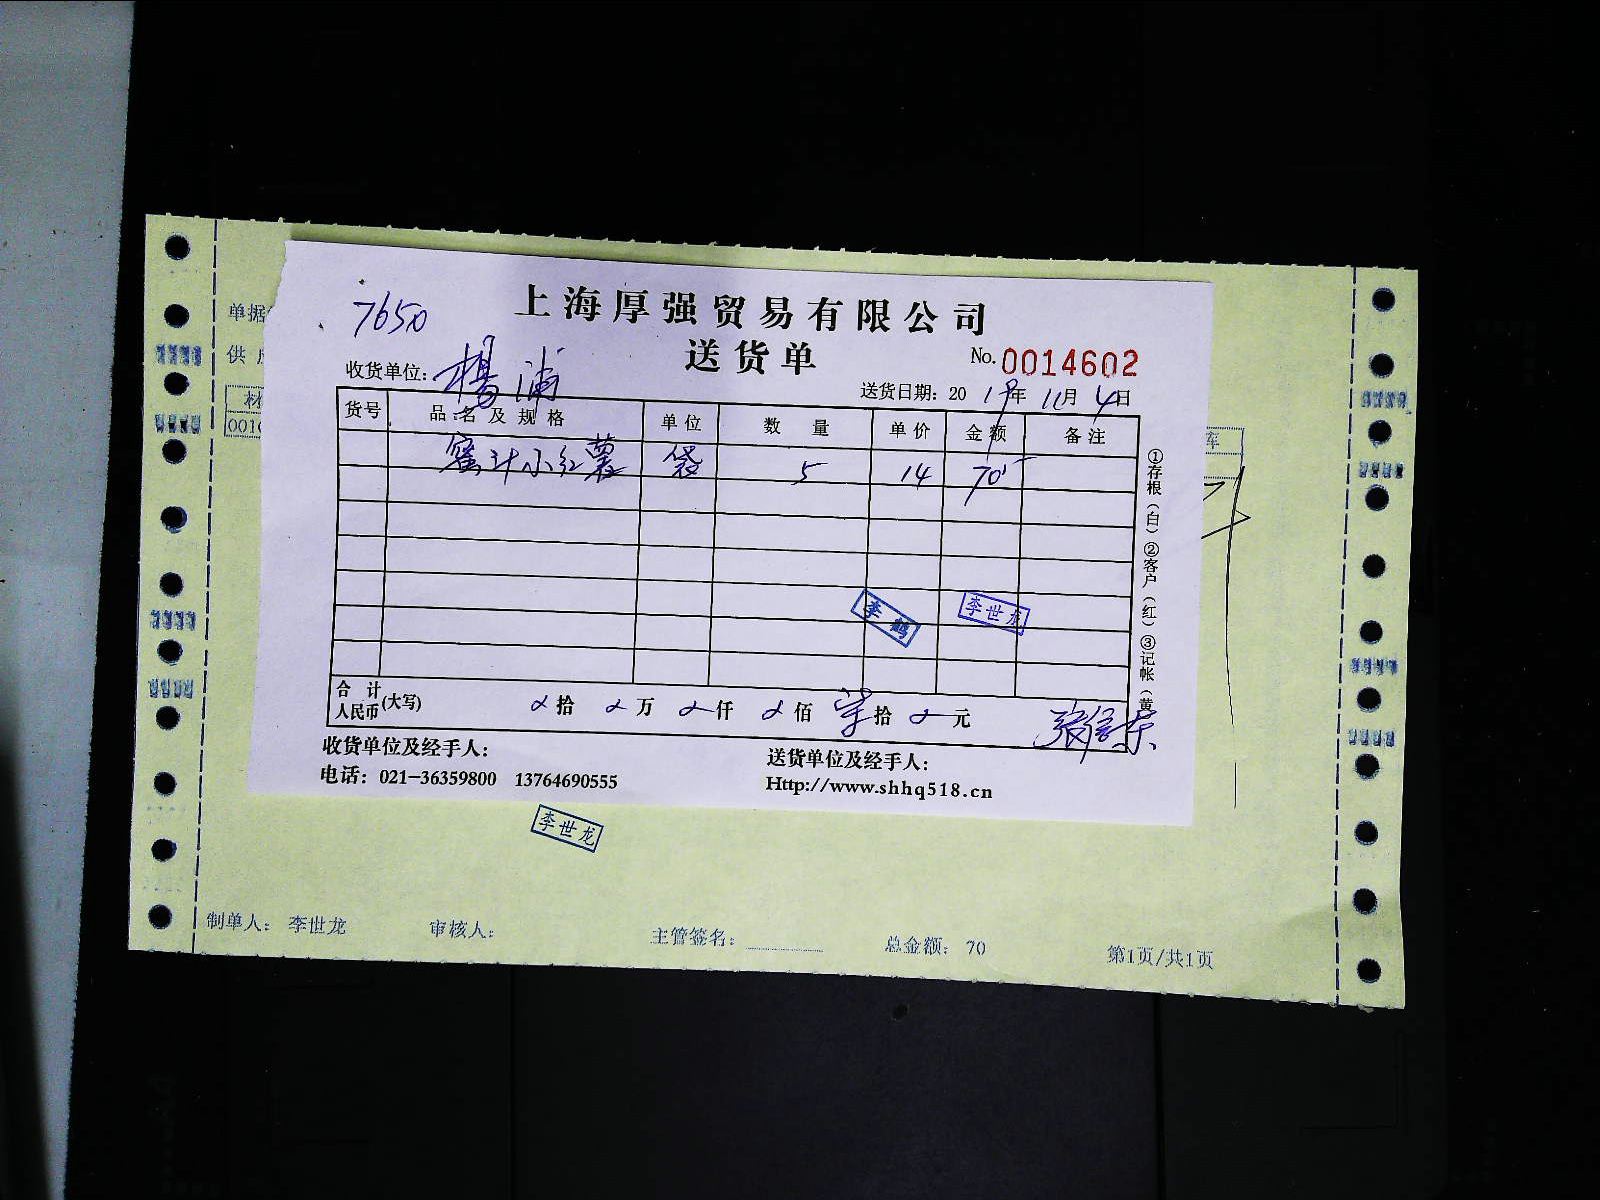 上海厚强贸易有限公司
7650
送货单
No. 0014602
收货单位: 楊浦
送货日期: 2019年11月4日
单据
供
材
001
车
货号 品名及规格 单位 数量 单价 金额 备注
蜜汁小红薯 袋 5 14 70
①存根(白)②客户(红)③记帐(黄
李鹤
李世龙
合计人民币(大写) 拾 万 仟 佰 柒拾 元
收货单位及经手人:
送货单位及经手人:
电话: 021-36359800 13764690555
Http://www.shhq518.cn
李世龙
制单人: 李世龙 审核人: 主管签名: 总金额: 70 第1页/共1页